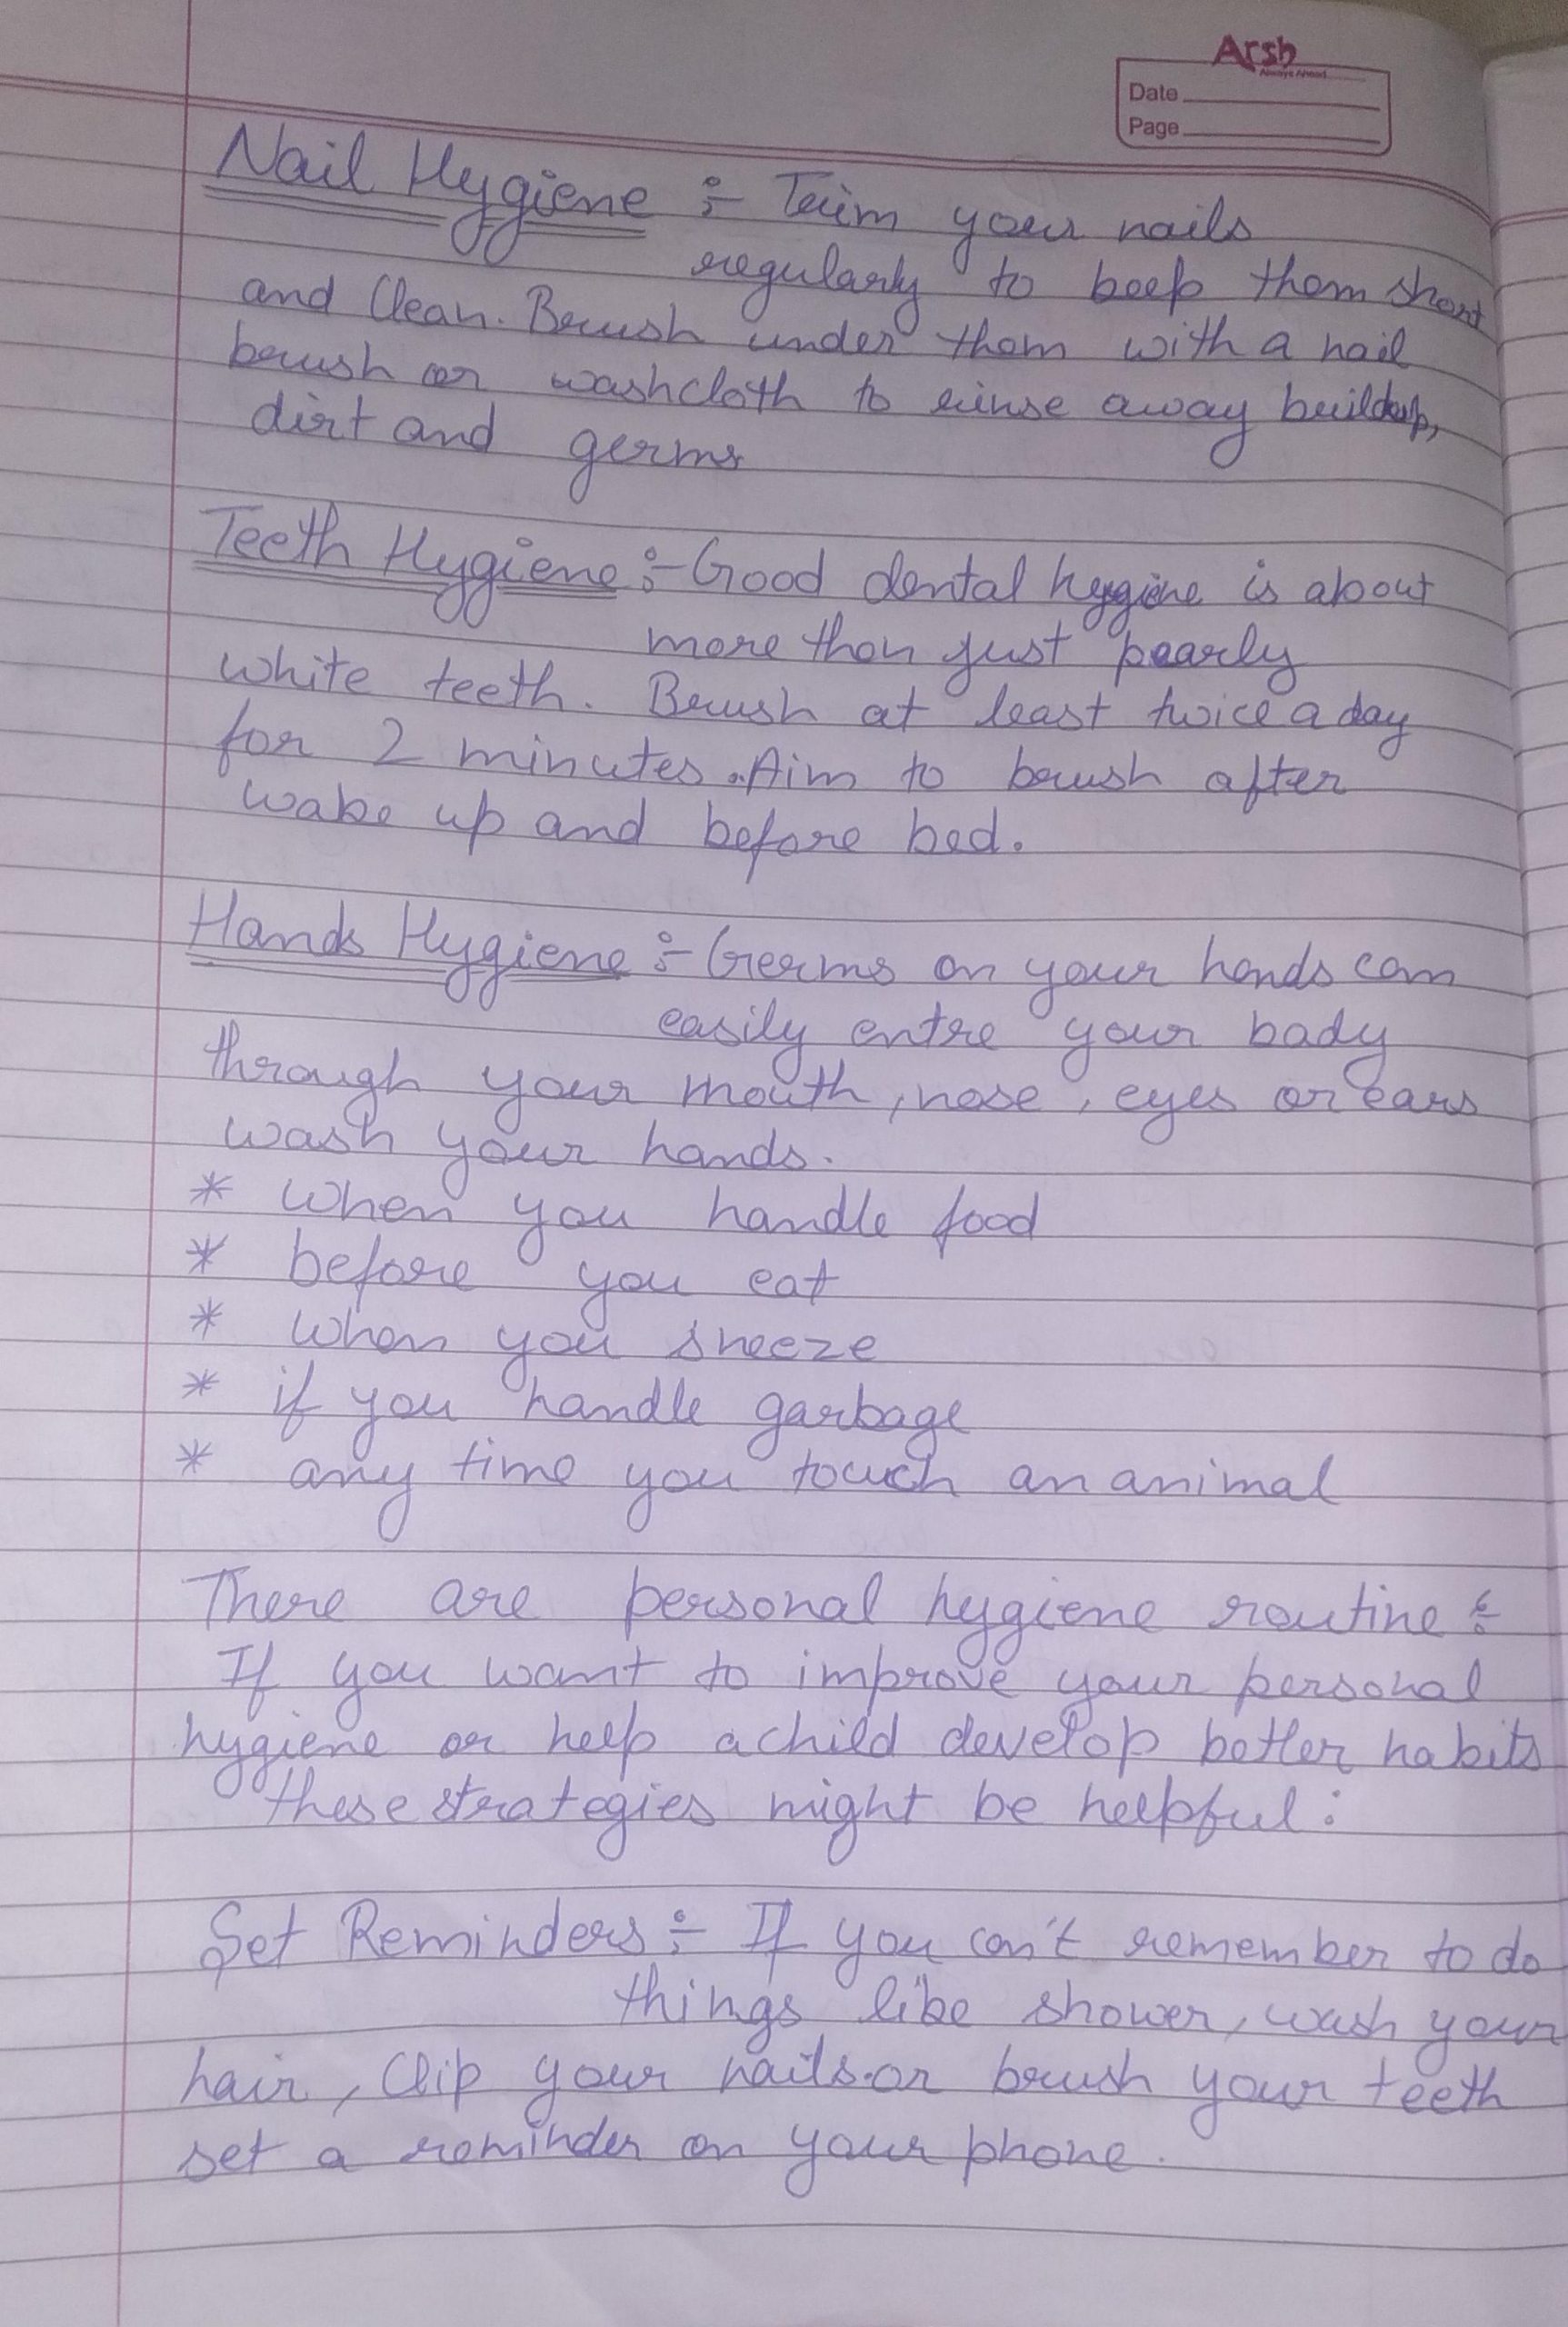 Arsh
Always Ahead
Date
Page
Nail Hygiene :- Trim your nails
regularly to keep them short
and Clean. Brush under them with a nail
brush or washcloth to rinse away buildup,
dirt and germs
Teeth Hygiene :- Good dental hygiene is about
more than just pearly
white teeth. Brush at least twice a day
for 2 minutes. Aim to brush after
wake up and before bed.
Hands Hygiene :- Germs on your hands can
easily entre your body
through your mouth, nose, eyes or ears
wash your hands.
* When you handle food
* before you eat
* When you sneeze
* if you handle garbage
* any time you touch an animal
There are personal hygiene routine :-
If you want to improve your personal
hygiene or help a child develop better habits
these strategies might be helpful:
Set Reminders :- If you can't remember to do
things like shower, wash your
hair, Clip your nails or brush your teeth
set a reminder on your phone.